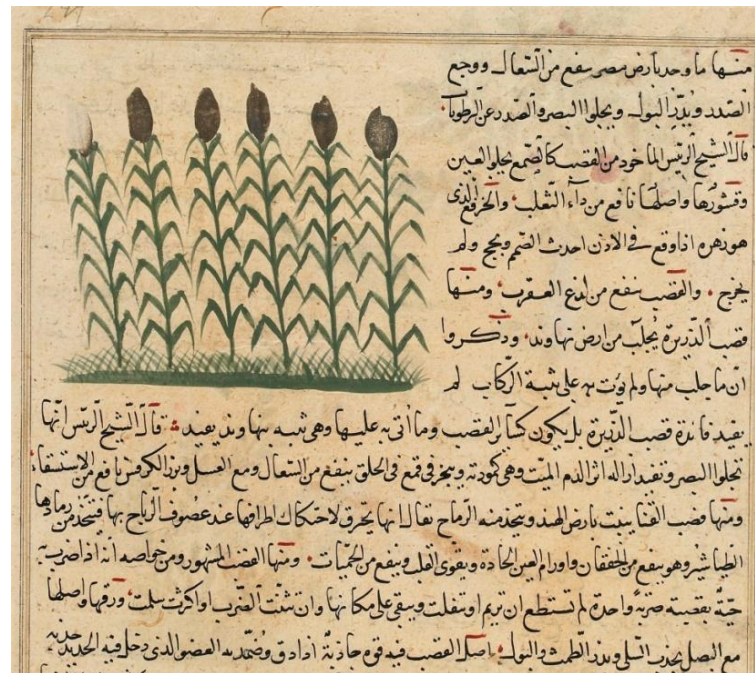 منها ما وجد بارض مصر ينفع من السعال ووجع
الصدر ويدر البول ويجلوا البصر والصدر عن الرطوبا
قال الشيخ الرئيس الماخوذ من القصب كالصمغ يجلو العين
وقشورها واصلها نافع من داء الثعلب والخرقع الذى
هو زهره اذا وقع فى الاذن احدث الصمم ولحج ولم
يخرج والقصب ينفع من لدغ العقرب ومنها
قصب الذريرة يجلب من ارض نهاوند وذكروا
ان ما جلب منها ولم يؤت به على ثنية الركاب لم
يفيد فائدة قصب الذريرة بل يكون كسائر القصب وما اتى به عليها وهى ثنية بنهاوند يفيد قال الشيخ الرئيس انها
تجلوا البصر وتفيد ازاله اثر الدم الميت وهى كمودته ويبخر فى قمع فى الحلق ينفع من السعال ومع العسل وبزر الكرفس نافع من الاستسقاء
ومنها قصب القنا ينبت بارض الهند ويتخذ منه الرماح يقال انها يحترق لاحتكاك اطرافها عند عصوف الرياح بها فيتخذ من رمادها
الطباشير وهو ينفع من الخفقان واورام العين الحادة ويقوى القلب وينفع من الحميات ومنها القصب المشهور ومن خواصه انه اذا ضرب به
حية بقصبة ضربة واحدة لم تستطع ان تريم او تنفلت وتبقى على مكانها وان ثنيت الضرب او اكثرت سلمت ورقها واصلها
مع البصل يجذب السلى ويدر الطمث والبول اصل القصب فيه قوه جاذبة اذا دق وضمد به العضو الذى دخل فيه الحديد جذبه